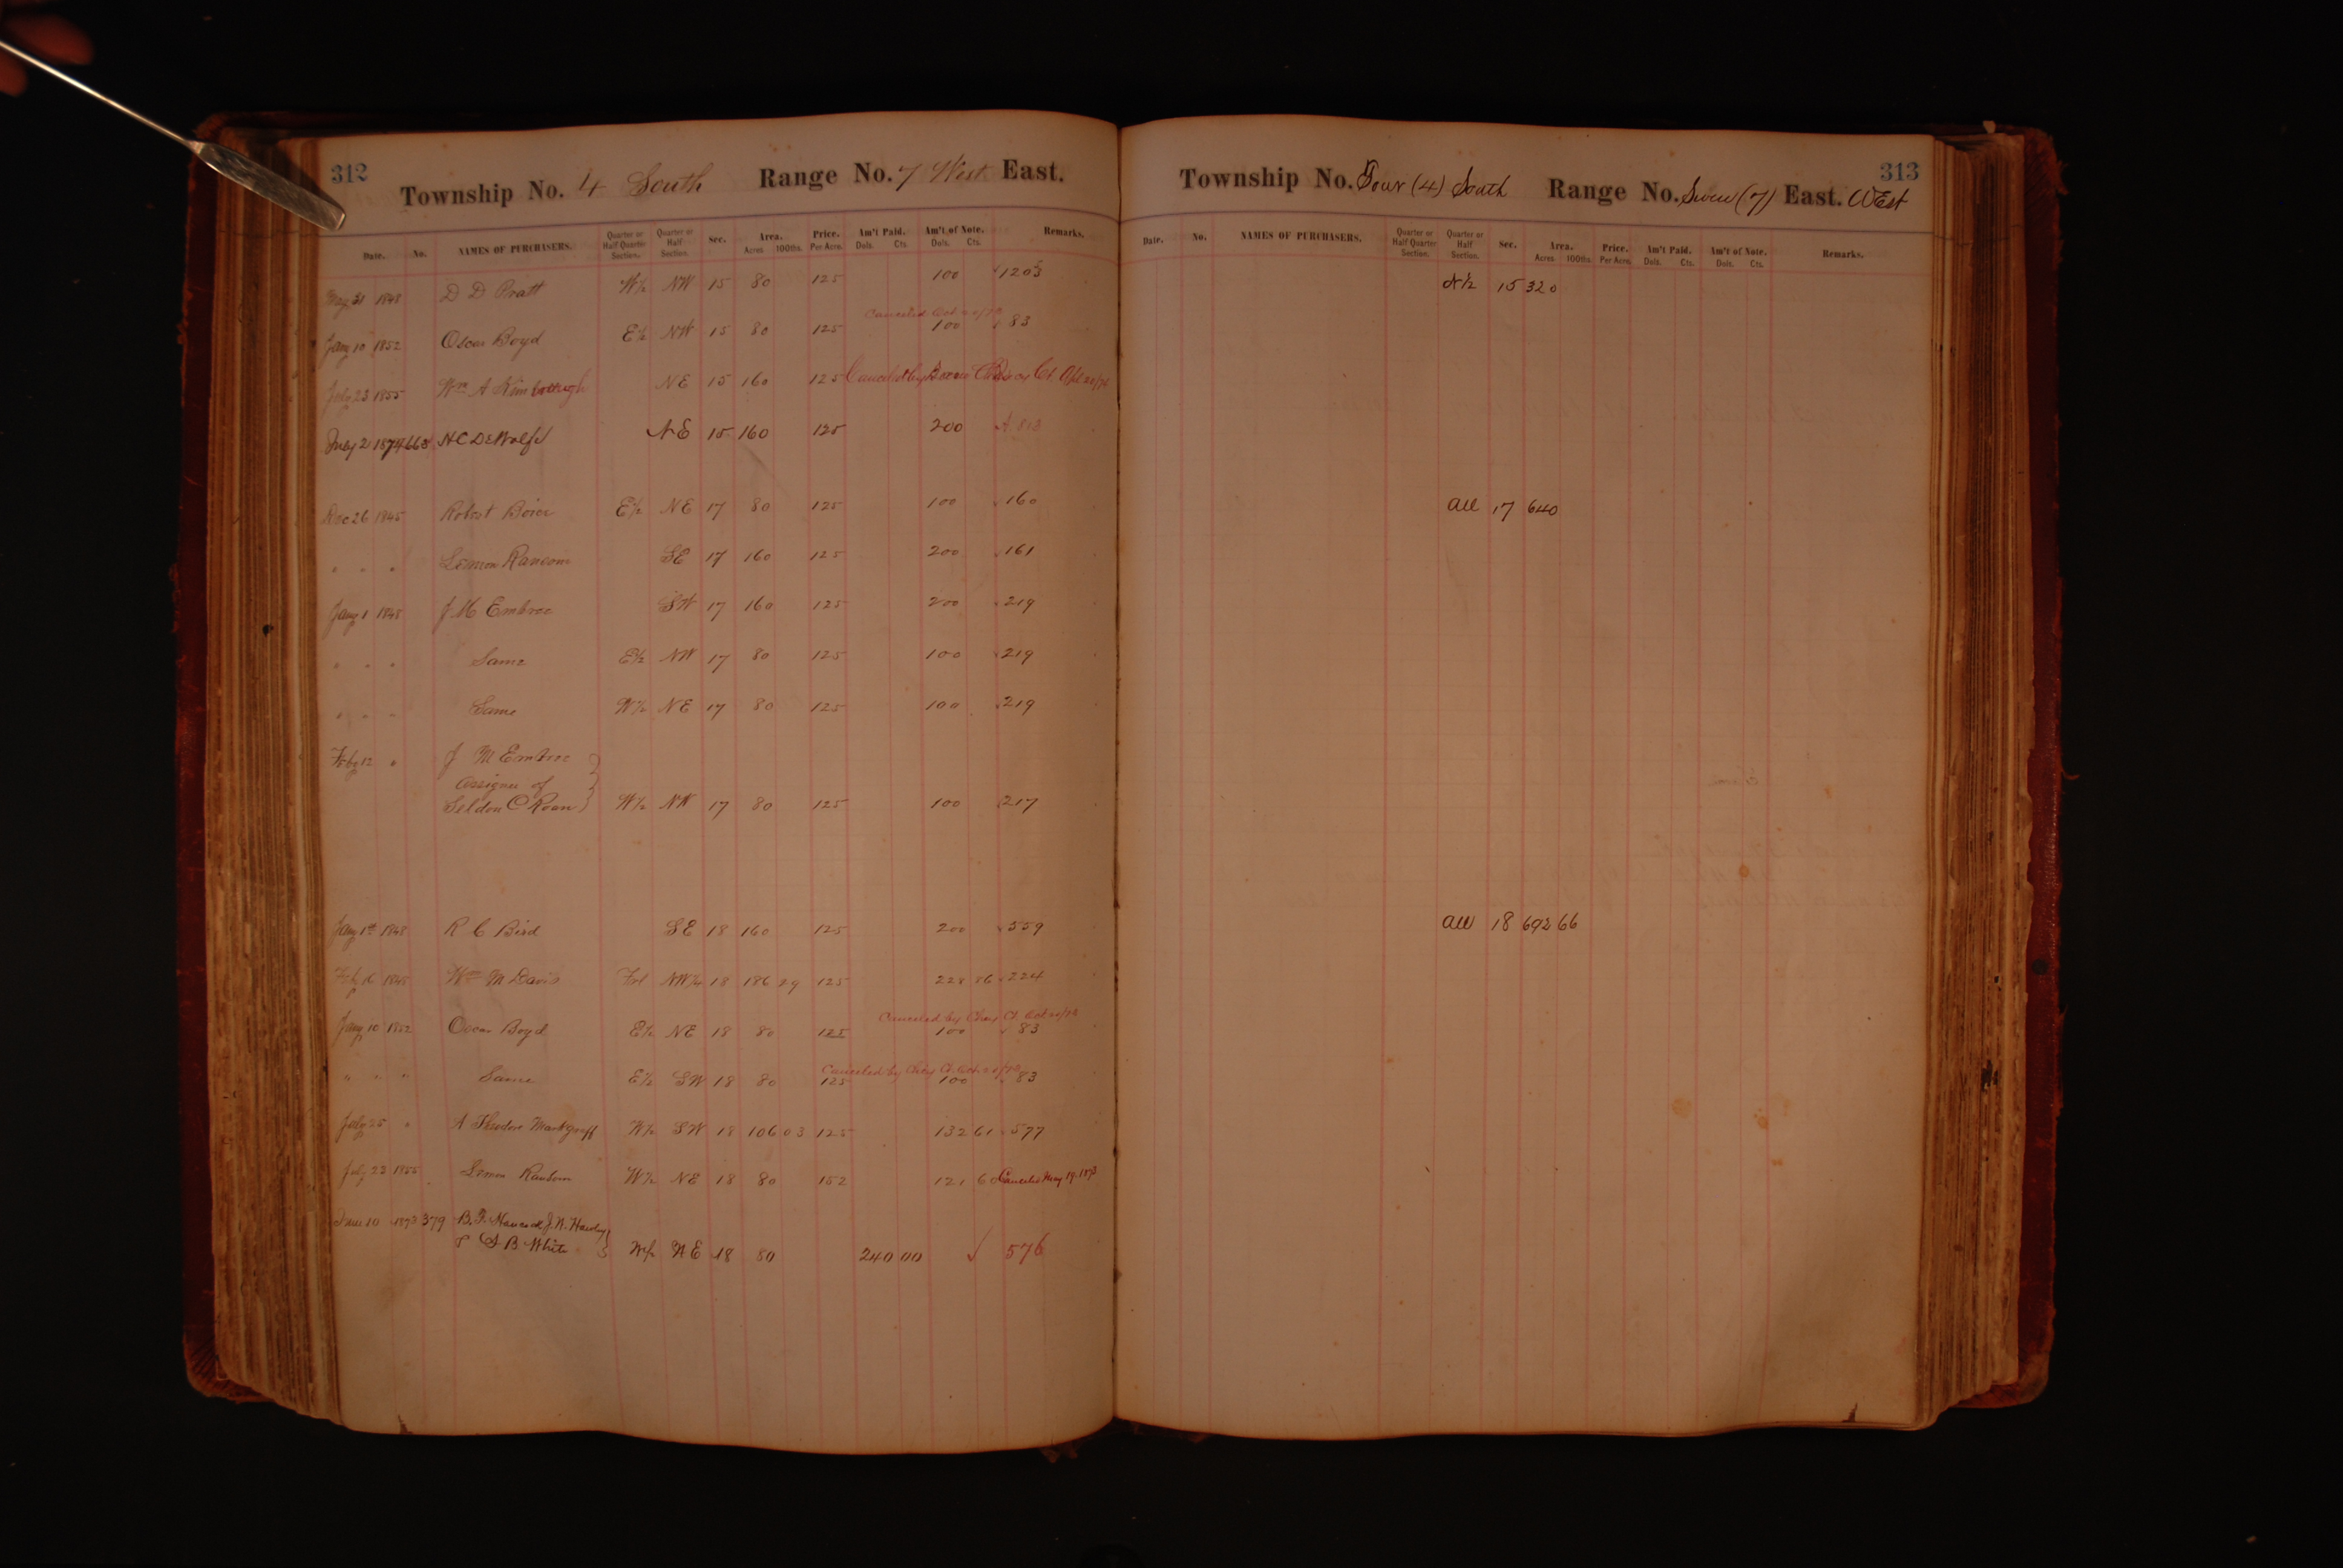 312
Township No. 4 South Range No. 7 West East.
Date. No. NAMES OF PURCHASERS. Quarter or Half Quarter Section. Quarter or Half Section. Sec. Area. Acres 100ths. Price. Per Acre. Am't Paid. Dols. Cts. Am't of Note. Dols. Cts. Remarks.
May 31 1848 D D Pratt W½ NW 15 80 125 100
Canceled Oct
Jany 10 1852 Oscar Boyd E½ NW 15 80 125 100 83
July 23 1855 Wm A Kimbrough NE 15 160 125 Canceled by Ct.
May 2 1874 668 H C DeWolf NE 15 160 125 200
Dec 26 1845 Robert Boier E½ NE 17 80 125 100 160
" " " Lemon Ransom SE 17 160 125 200 161
Jany 1 1848 J M Embree SW 17 160 125 200 219
" " " Same E½ NW 17 80 125 100 219
" " " Same W½ NE 17 80 125 100 219
Feby 12 " J M Embree
assignee of
Seldon C Roan W½ NW 17 80 125 100 217
Jany 1st 1848 R C Bird SE 18 160 125 200 559
Feby 16 1848 Wm M Davis Frl NW¼ 18 186 29 125 228 86 224
Canceled by Chcy Ct. Oct
Jany 10 1852 Oscar Boyd E½ NE 18 80 125 100 83
Canceled by Chcy Ct. Oct
" " " Same E½ SW 18 80 125 100 83
July 25 " A Theodore Markgraff W½ SW 18 106 03 125 132 61 577
July 23 1855 Lemon Ransom W½ NE 18 80 152 121 60 Canceled May 19 1873
June 10 1873 379 B. F. Hancock, J. N.
& S B White W½ NE 18 80 240 00 ✓ 576
313
Township No. Four (4) South Range No. Seven (7) East. West
Date. No. NAMES OF PURCHASERS. Quarter or Half Quarter Section. Quarter or Half Section. Sec. Area. Acres 100ths. Price. Per Acre. Am't Paid. Dols. Cts. Am't of Note. Dols. Cts. Remarks.
N½ 15 320
all 17 640
all 18 692 66